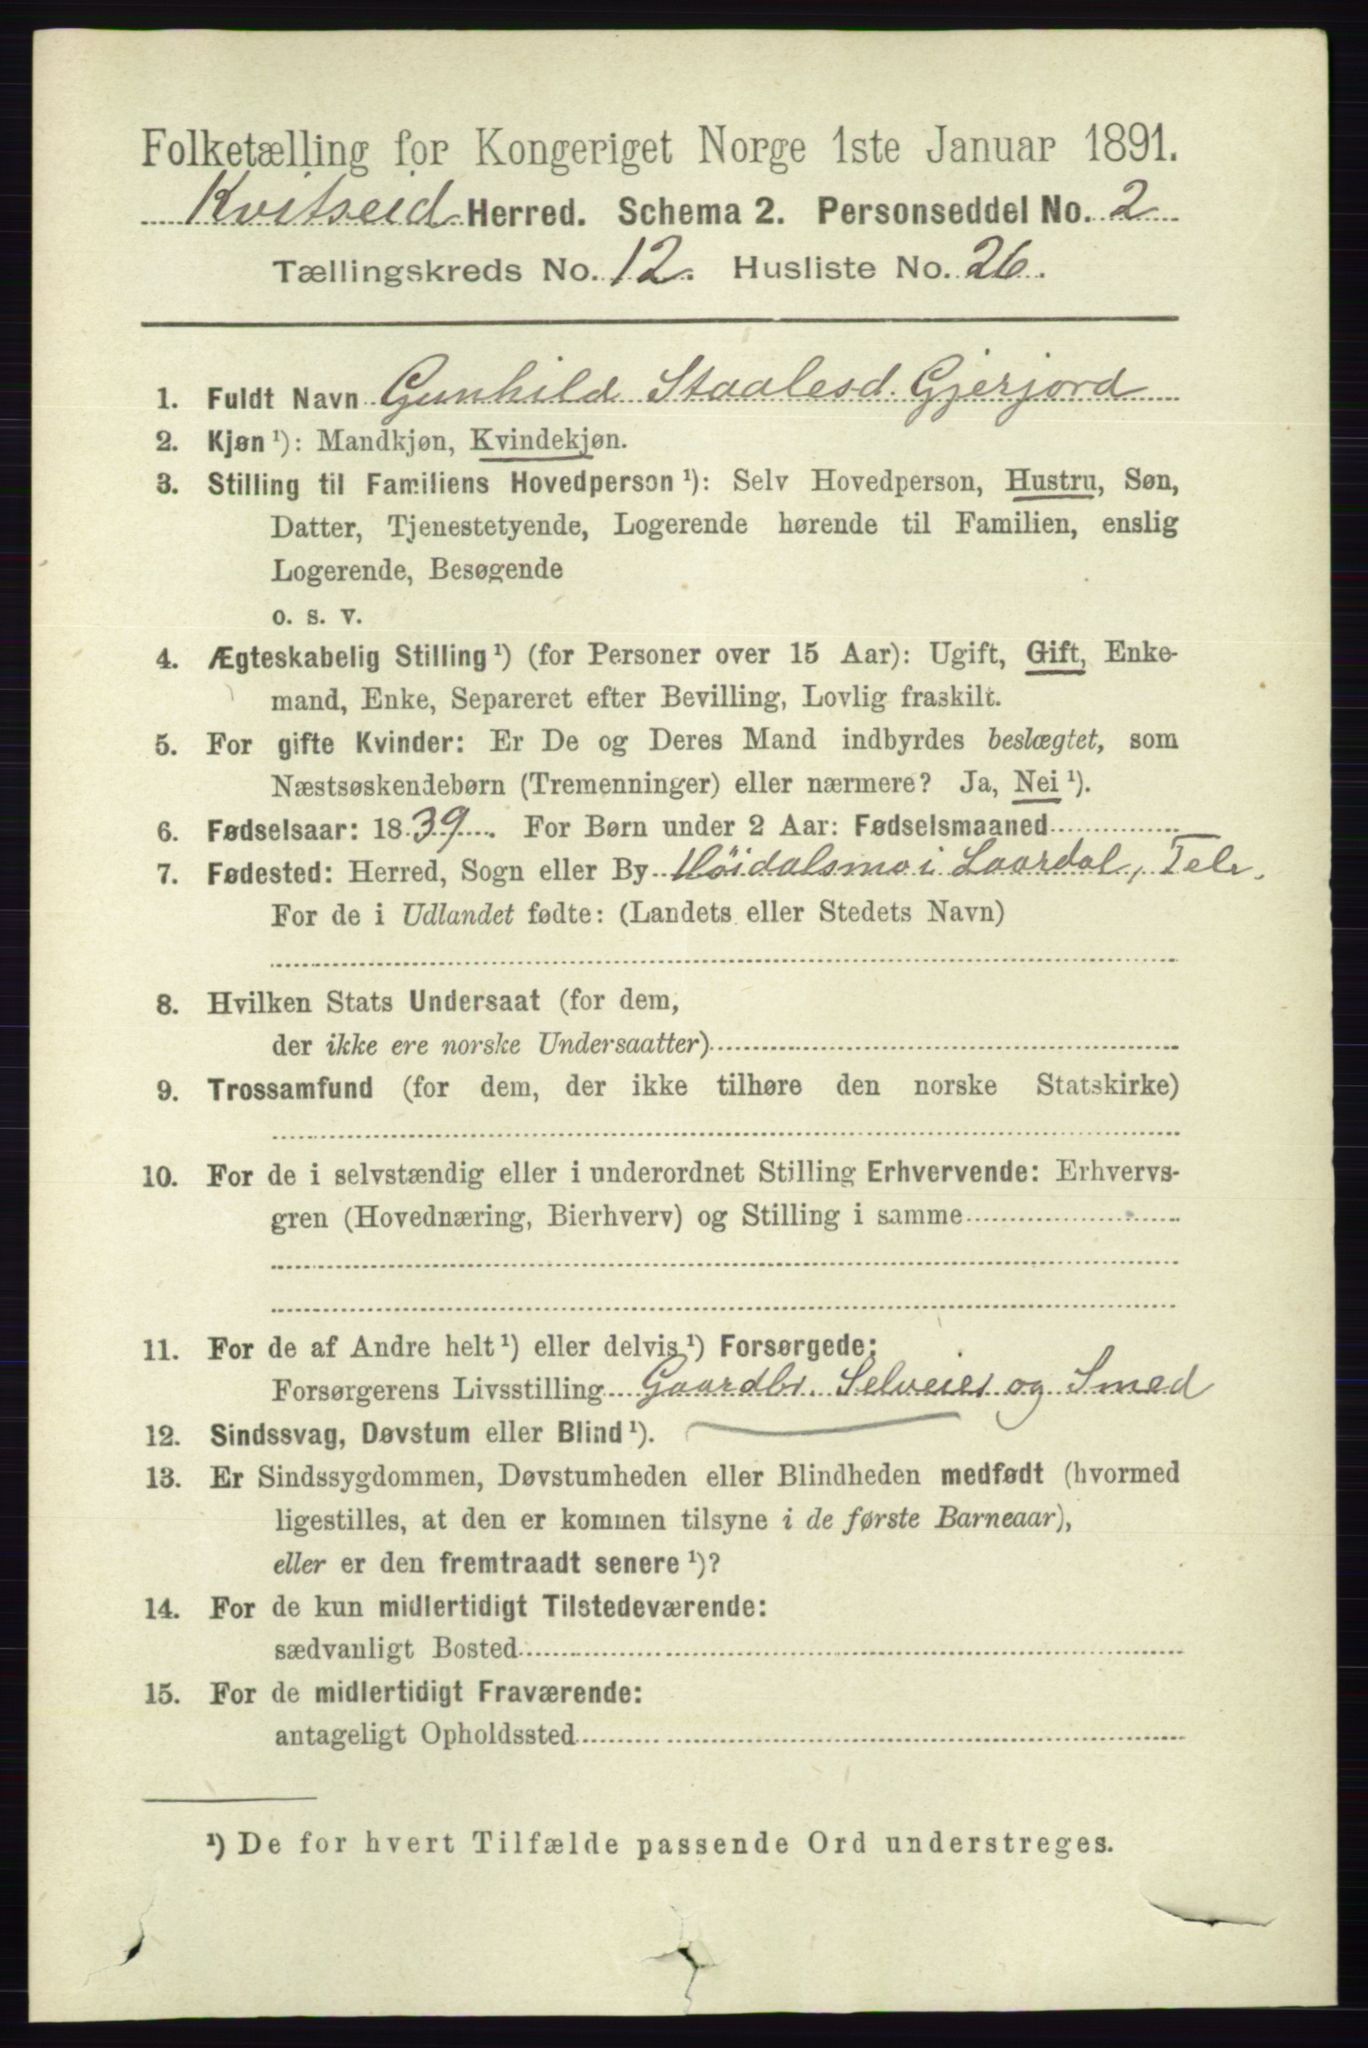 Folketælling for Kongeriget Norge 1ste Januar 1891.
Kvitseid Herred. Schema 2. Personseddel No. 2
Tællingskreds No. 12. Husliste No. 26.
1. Fuldt Navn Gunhild Staalesd. Gjerjord
2. Kjøn ¹): Mandkjøn, Kvindekjøn.
3. Stilling til Familiens Hovedperson ¹): Selv Hovedperson, Hustru, Søn,
Datter, Tjenestetyende, Logerende hørende til Familien, enslig
Logerende, Besøgende
o. s. v.
4. Ægteskabelig Stilling ¹) (for Personer over 15 Aar): Ugift, Gift, Enke-
mand, Enke, Separeret efter Bevilling, Lovlig fraskilt.
5. For gifte Kvinder: Er De og Deres Mand indbyrdes beslægtet, som
Næstsøskendebørn (Tremenninger) eller nærmere? Ja, Nei ¹).
6. Fødselsaar: 1839. For Børn under 2 Aar: Fødselsmaaned
7. Fødested: Herred, Sogn eller By Høidalsmo i Laardal, Tele.
For de i Udlandet fødte: (Landets eller Stedets Navn)
8. Hvilken Stats Undersaat (for dem,
der ikke ere norske Undersaatter)
9. Trossamfund (for dem, der ikke tilhøre den norske Statskirke)
10. For de i selvstændig eller i underordnet Stilling Erhvervende: Erhvervs-
gren (Hovednæring, Bierhverv) og Stilling i samme
11. For de af Andre helt ¹) eller delvis ¹) Forsørgede:
Forsørgerens Livsstilling Gaardbr. Selveier og Smed
12. Sindssvag, Døvstum eller Blind ¹).
13. Er Sindssygdommen, Døvstumheden eller Blindheden medfødt (hvormed
ligestilles, at den er kommen tilsyne i de første Barneaar),
eller er den fremtraadt senere ¹)?
14. For de kun midlertidigt Tilstedeværende:
sædvanligt Bosted
15. For de midlertidigt Fraværende:
antageligt Opholdssted
¹) De for hvert Tilfælde passende Ord understreges.